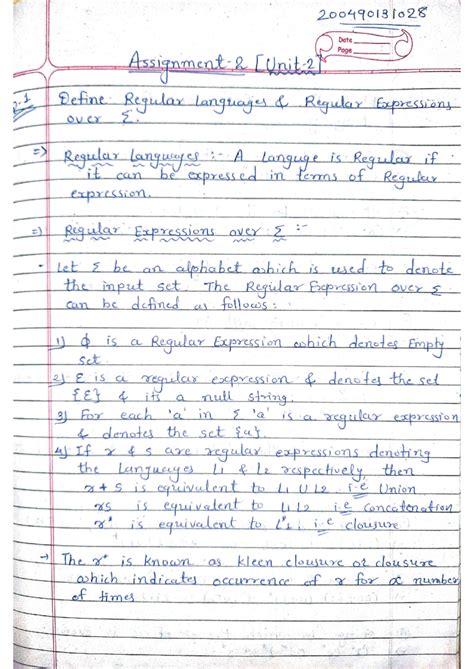 200490131028
Date
Page
Assignment-2 [Unit-2]
Q.1 Define Regular languages & Regular Expressions
over Σ.
=> Regular Languages :- A Languge is Regular if
it can be expressed in terms of Regular
expression.
=) Regular Expressions over Σ :-
- Let Σ be an alphabet which is used to denote
the input set. The Regular Expression over Σ
can be defined as follows:
1) Φ is a Regular Expression which denotes Empty
set.
2) Ɛ is a regular expression & denotes the set
{Ɛ} & its a null string.
3) For each 'a' in Σ 'a' is a regular expression
& denotes the set {a}.
4) If r & s are regular expressions denoting
the Languages L1 & L2 respectively, then
r+s is equivalent to L1 U L2 i.e Union
rs is equivalent to L1L2 i.e concatenation
r* is equivalent to L*1, i.e clousure
→ The r* is known as kleen clousure or clousure
which indicates occurrence of r for ∝ number
of times.